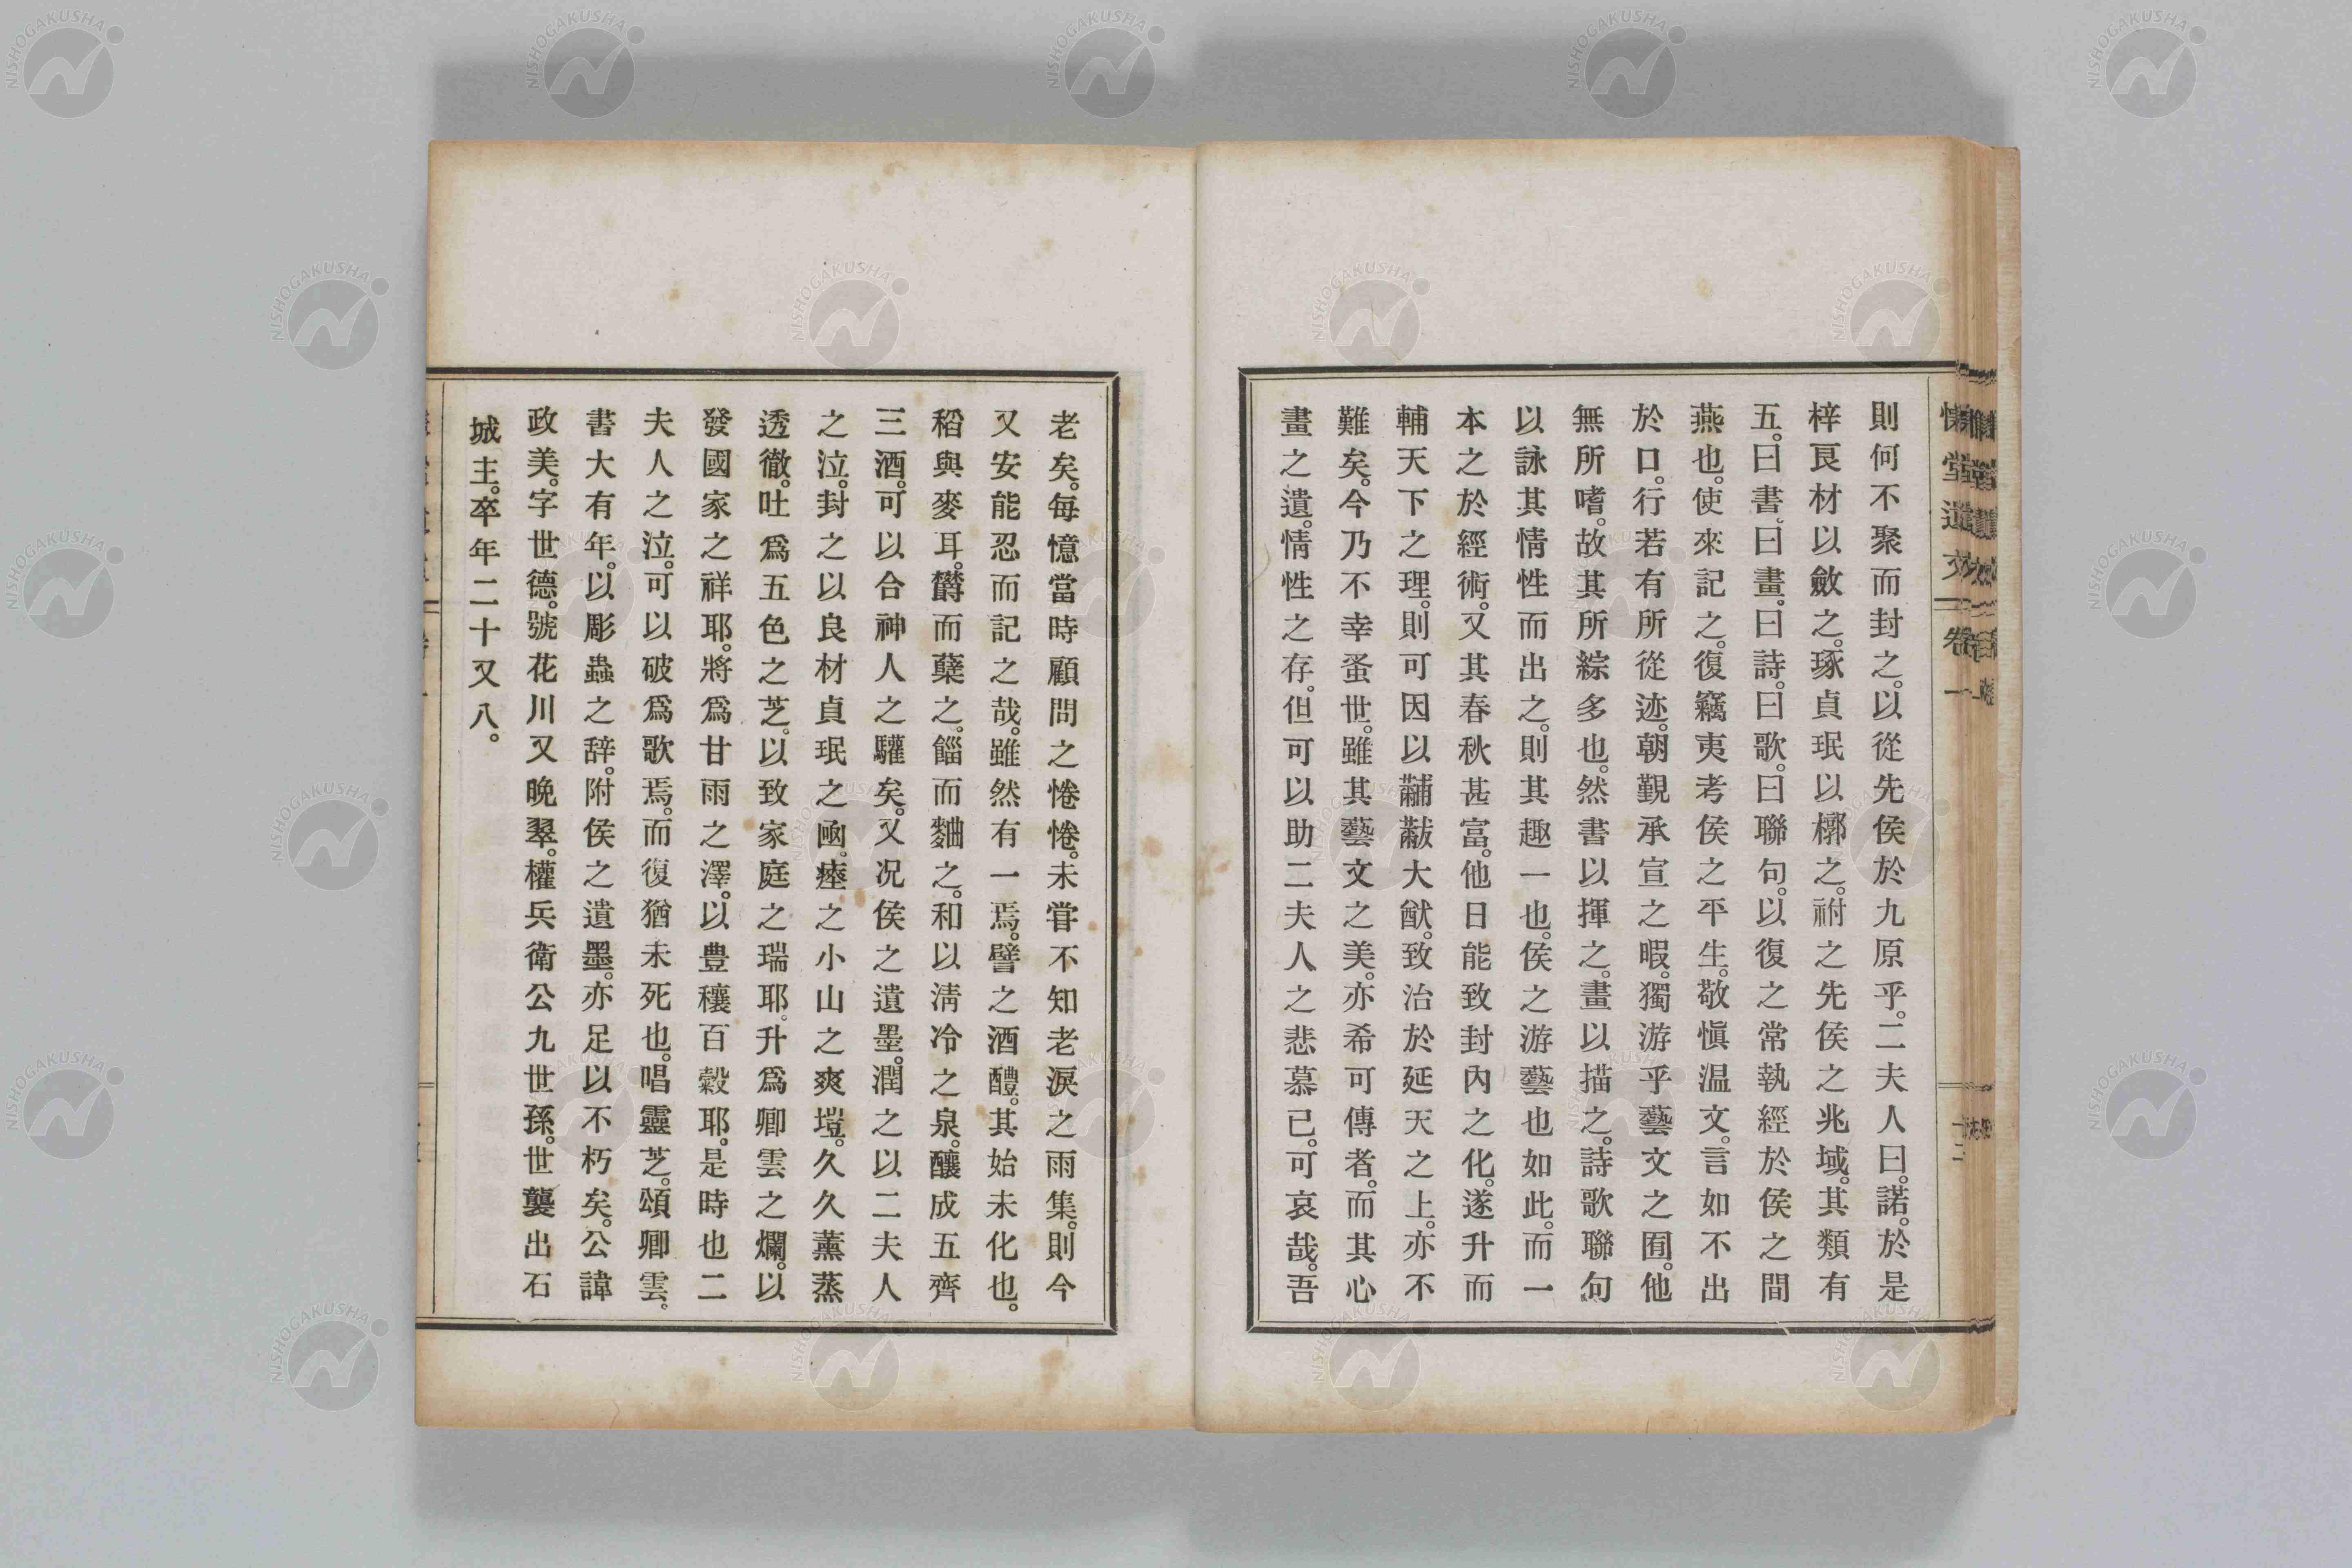 慊堂遺文 卷一
十二
則何不聚而封之。以從先侯於九原乎。二夫人曰。諾。於是
梓良材以斂之。琢貞珉以槨之。祔之先侯之兆域。其類有
五。曰書。曰畫。曰詩。曰歌。曰聯句。以復之常執經於侯之間
燕也。使來記之。復竊夷考侯之平生。敬愼温文。言如不出
於口。行若有所從迹。朝覲承宣之暇。獨游乎藝文之囿。他
無所嗜。故其所綜多也。然書以揮之。畫以描之。詩歌聯句
以詠其情性而出之。則其趣一也。侯之游藝也如此。而一
本之於經術。又其春秋甚富。他日能致封內之化。遂升而
輔天下之理。則可因以黼黻大猷。致治於延天之上。亦不
難矣。今乃不幸蚤世。雖其藝文之美。亦希可傳者。而其心
畫之遺。情性之存。但可以助二夫人之悲慕已。可哀哉。吾
老矣。每憶當時顧問之惓惓。未甞不知老淚之雨集。則今
又安能忍而記之哉。雖然有一焉。譬之酒醴。其始未化也。
稻與麥耳。欝而蘖之。餾而麯之。和以淸冷之泉。釀成五齊
三酒。可以合神人之驩矣。又况侯之遺墨。潤之以二夫人
之泣。封之以良材貞珉之凾。瘞之小山之爽塏。久久薰蒸
透徹。吐爲五色之芝。以致家庭之瑞耶。升爲卿雲之爛。以
發國家之祥耶。將爲甘雨之澤。以豊穰百穀耶。是時也二
夫人之泣。可以破爲歌焉。而復猶未死也。唱靈芝。頌卿雲。
書大有年。以彫蟲之辞。附侯之遺墨。亦足以不朽矣。公諱
政美。字世德。號花川又晩翠。權兵衛公九世孫。世襲出石
城主。卒年二十又八。
NISHOGAKUSHA